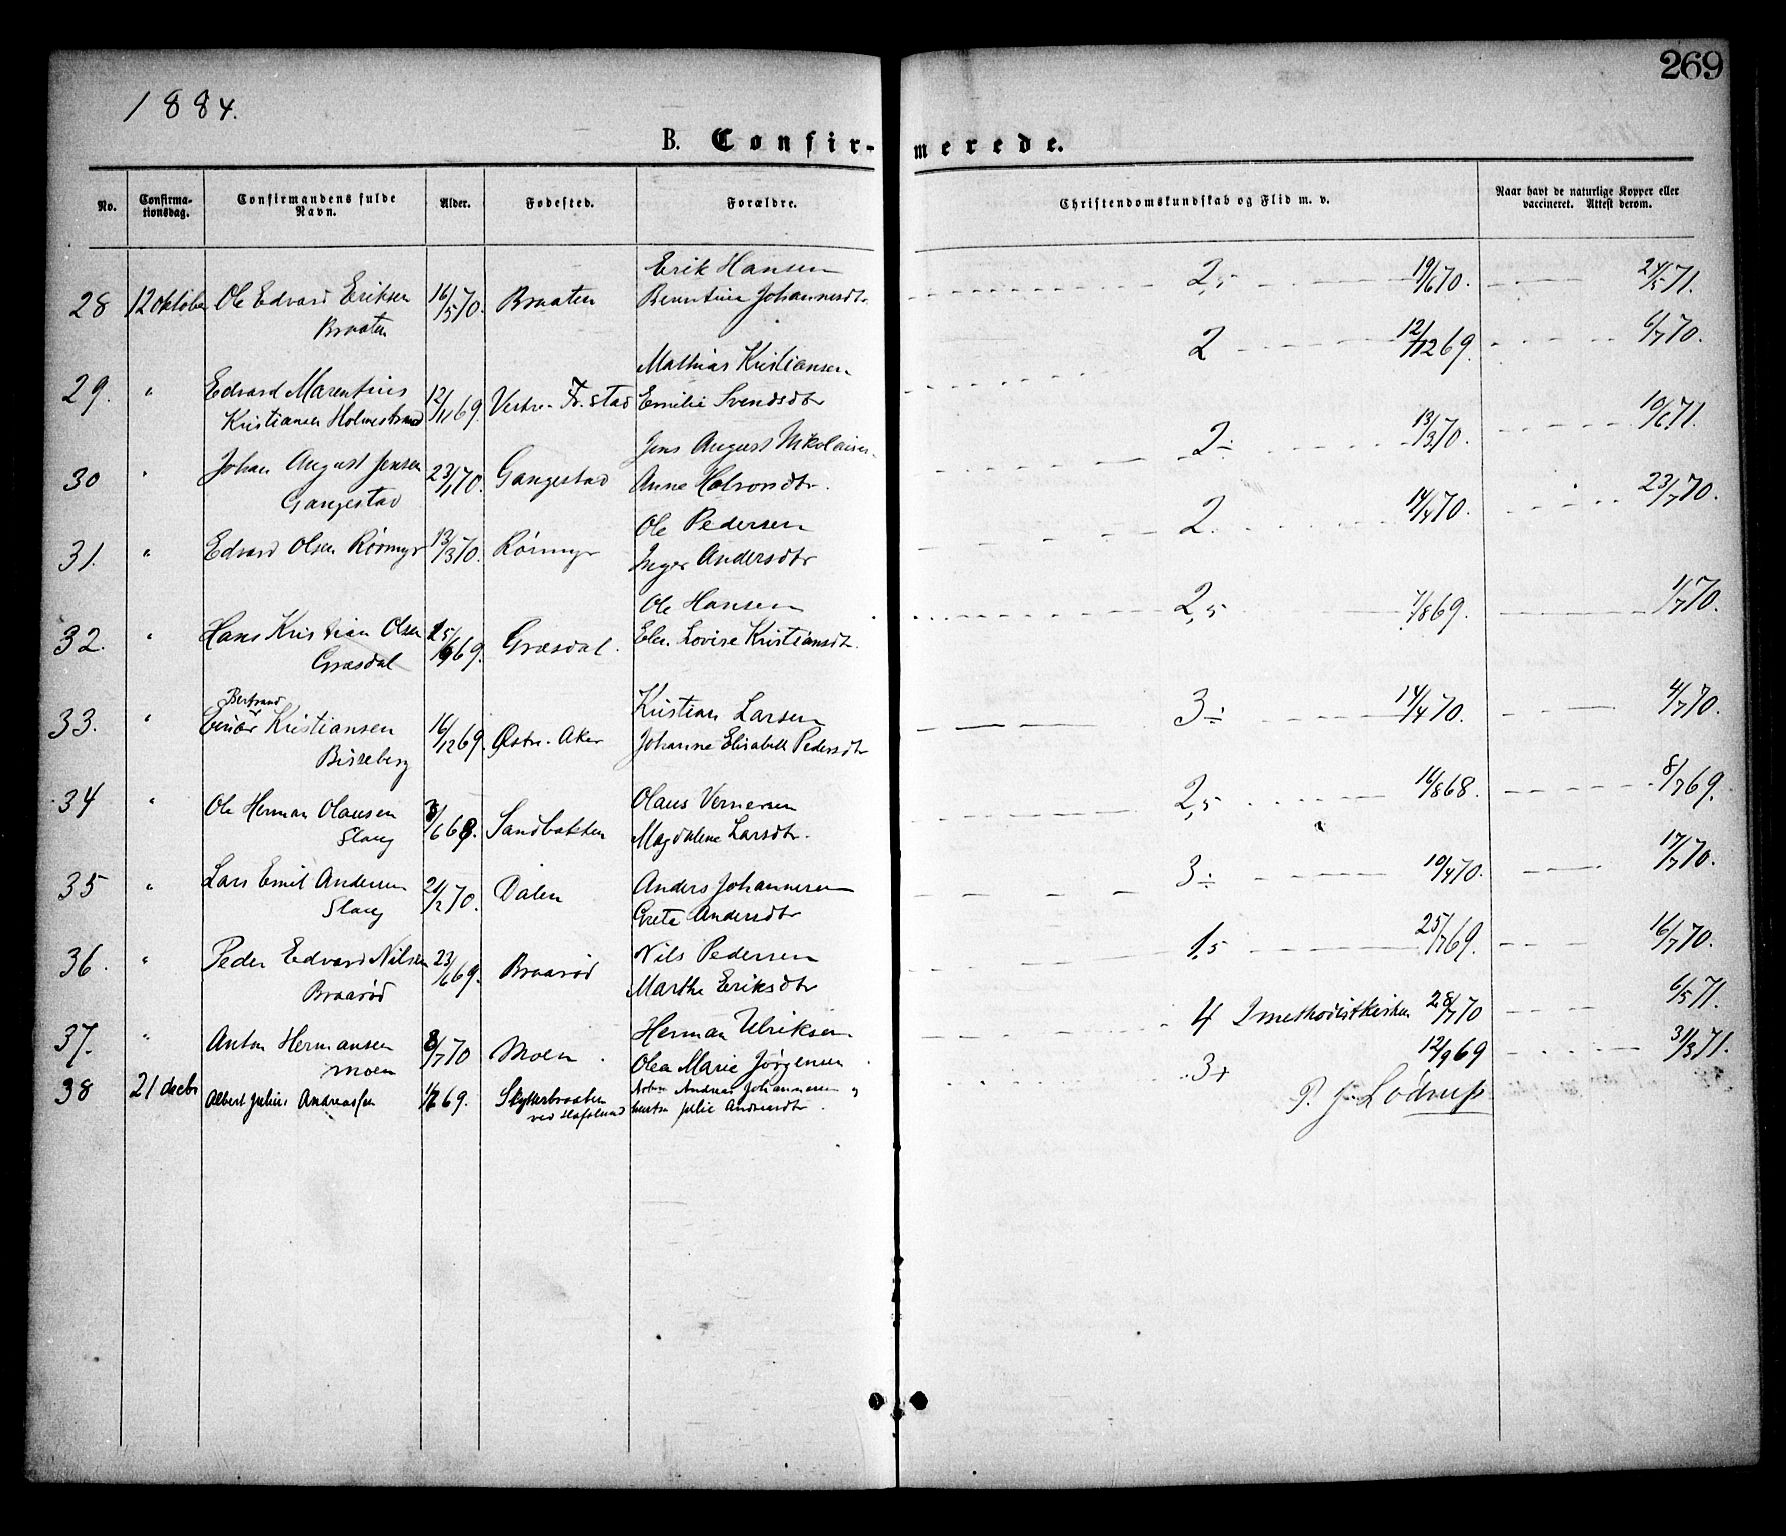 269
1884.
B. Confirmerede.
No. Confirmationsdag. Confirmandens fulde Navn. Alder. Fødested. Forældre. Christendomskundskab og Flid m. v. Naar havt de naturlige Kopper eller vaccineret. Attest derom.
Erik Hansen
28 12 oktober Ole Edvard Eriksen 16/5 70. Braaten Berntine Johannesdtr. 2,5 19/6 70. 24/5 71.
Braaten
Mathias Kristiansen 2 12/12 69. 6/7 70.
29. " Edvard Marentius 12/11 69. Vestre Fr.stad Emilie Svendsdtr
Kristiansen Holmestrand
Jens August Nikolaisen 2÷ 13/3 70. 10/6 71.
30 " Johan August Jensen 23/1 70. Gangestad Anne Halvorsdtr.
Gangestad
Ole Pedersen 2. 14/4 70. 23/7 70.
31. " Edvard Olsen Rørmyr 13/3 70. Rørmyr Inger Andersdtr
Ole Hansen 2,5 7/8 69. 1/7 70.
32. " Hans Kristian Olsen 25/9 69. Græsdal. Elen Lovise Kristiansdtr.
Græsdal
Bertrand
Kristian Larsen 3÷ 14/4 70. 4/7 70.
33. " Einar Kristiansen 16/12 69. Østre Aker Johanne Elisabeth Pedersdtr
Bisseberg
34 " Ole Herman Olausen 8/6 68. Sandbakken Olaus Vernersen 2,5 16/8 68. 8/7 69.
Slang Magdalene Larsdtr.
35 " Lars Emil Andersen 21/2 70. Dalen Anders Johannesen 3÷ 10/4 70. 17/7 70.
Slang Grete Andersdtr
36. " Peder Edvard Nilsen 23/6 69. Braarød Nils Pedersen 1,5 25/7 69. 16/7 70.
Braarød Marthe Eriksdtr
37. " Anton Hermansen 8/7 70 Moen. Herman Ulriksen 4 I methodistkirken 28/7 70 6/5 71.
Moen Olea Marie Jørgensen
38 21 decbr Albert Julius Andreassen 69. Skytterbraaten Andreas Johannesen og 3+ 12/9 69 31/3 71.
ved Hafslund Julie Andreasdtr.
P. J. Lødrup